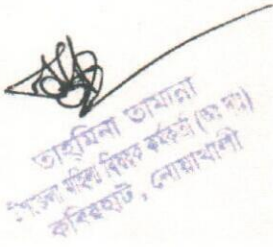 তাহমিনা তামান্না
উপজেলা মহিলা বিষয়ক কর্মকর্তা (অঃ দাঃ)
কবিরহাট, নোয়াখালী